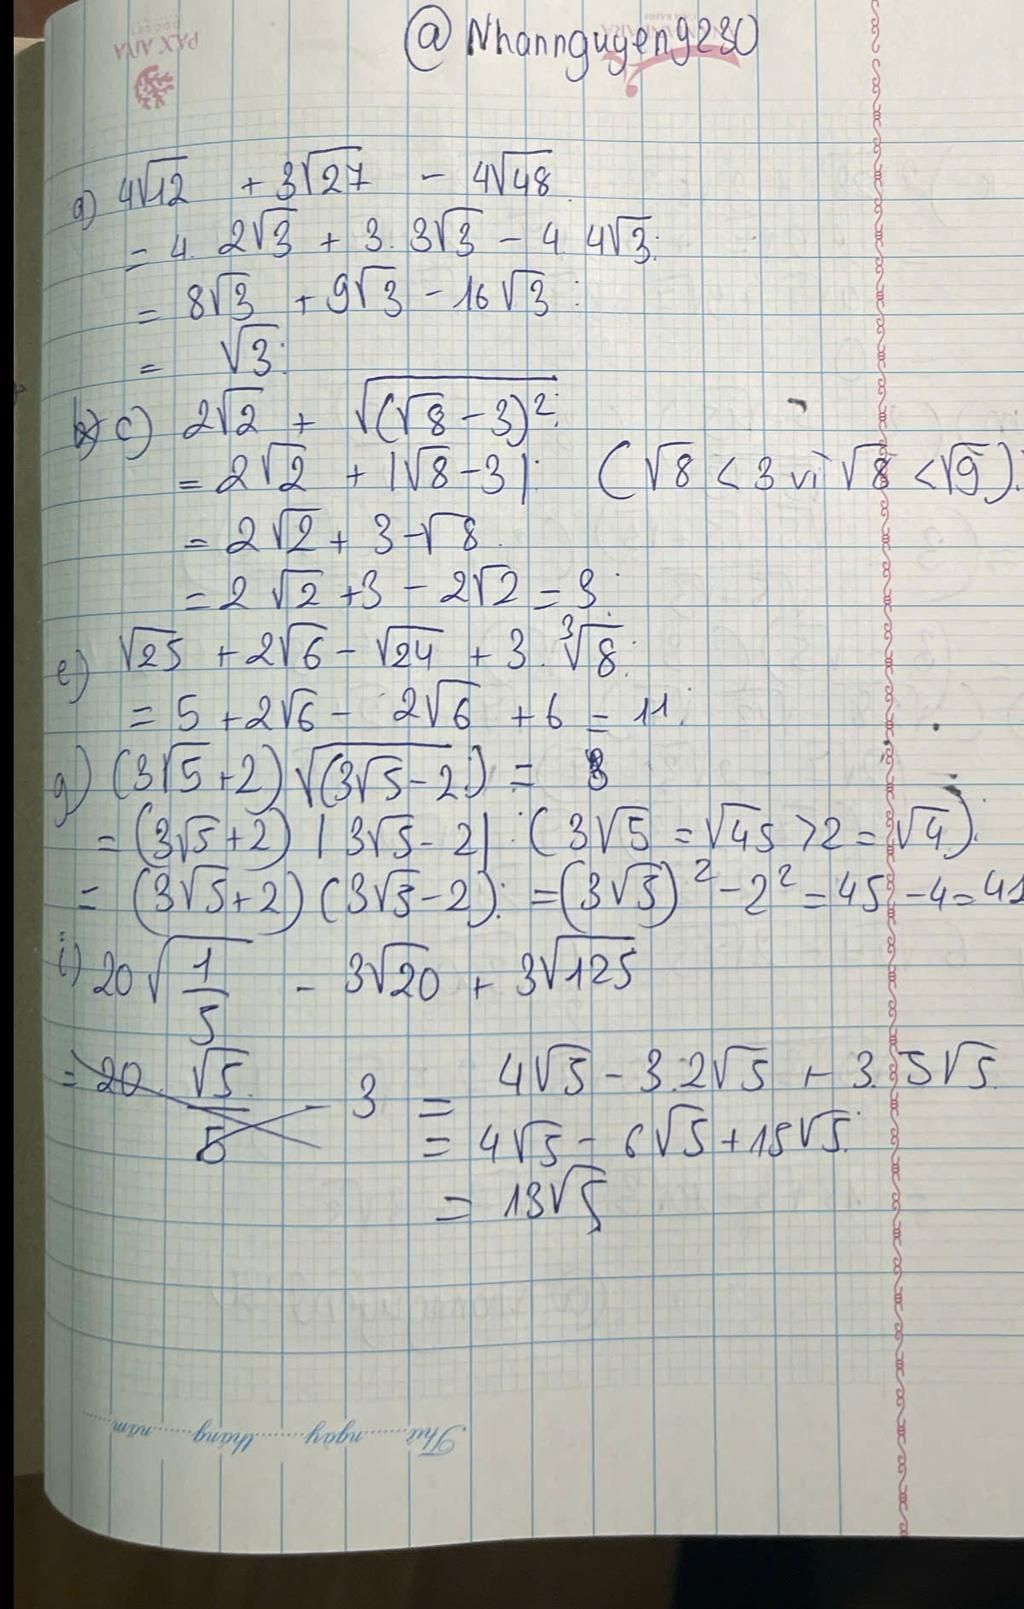 @Nhannguyen9230
PAX AIVA
a) 4√12 + 3√27 - 4√48
= 4. 2√3 + 3. 3√3 - 4. 4√3.
= 8√3 + 9√3 - 16√3
= √3.
c) 2√2 + √(√8-3)².
= 2√2 + |√8-3| (√8 < 3 vì √8 < √9).
= 2√2 + 3-√8.
= 2√2 +3 - 2√2 = 3.
e) √25 + 2√6 - √24 + 3. ∛8.
= 5 + 2√6 - 2√6 + 6 = 11.
g) (3√5+2)√(3√5-2) =
= (3√5+2) |3√5-2| (3√5 = √45 > 2 = √4).
= (3√5+2)(3√5-2). = (3√5)² - 2² = 45 - 4 = 41
i) 20√(1/5) - 3√20 + 3√125
= 20 √5/5 - 3 = 4√5 - 3.2√5 + 3. 5√5.
= 4√5 - 6√5 + 15√5.
= 13√5
Thứ......ngày......tháng......năm......